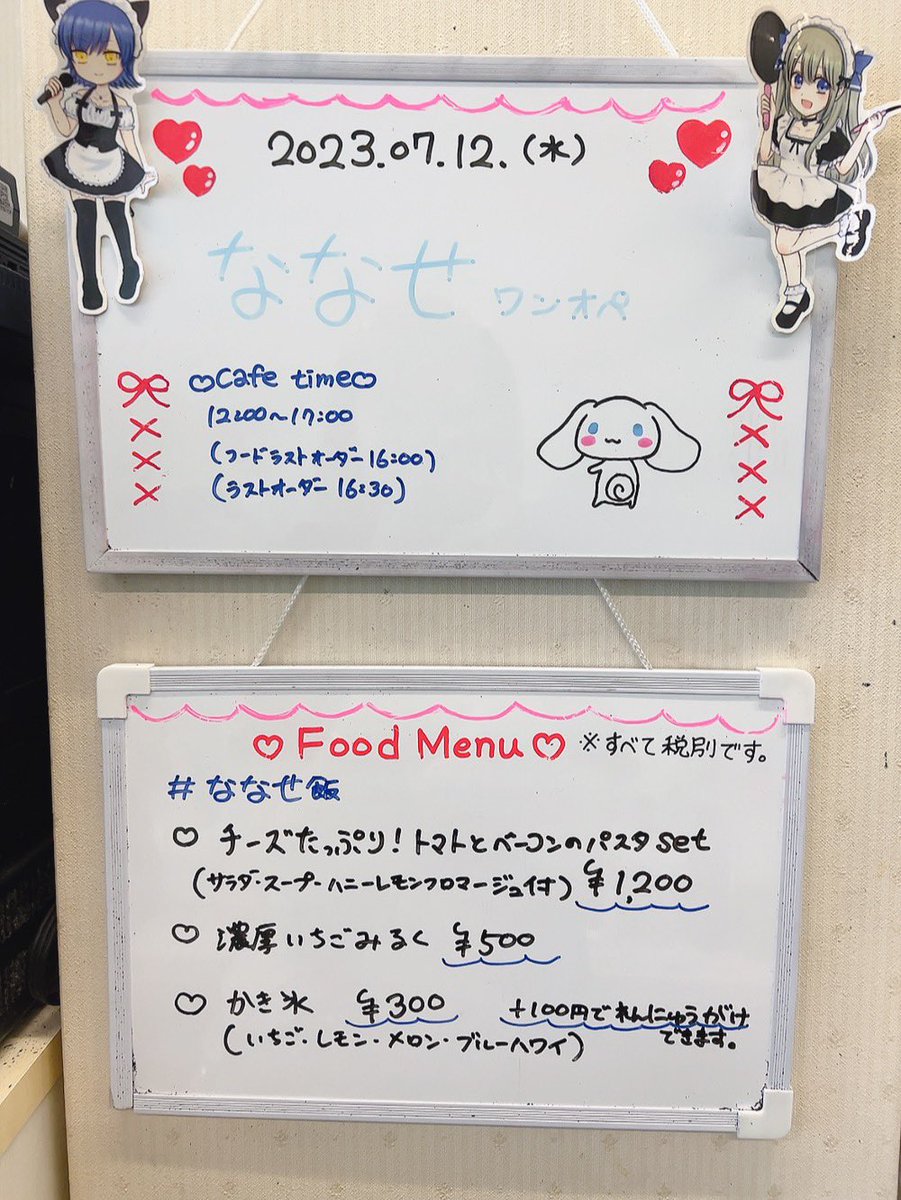 2023.07.12.(水)
ななせ ワンオペ
♡Cafe time♡
12:00〜17:00
(フードラストオーダー16:00)
(ラストオーダー 16:30)
♡Food Menu♡ ※すべて税別です。
#ななせ飯
♡ チーズたっぷり!トマトとベーコンのパスタset
(サラダ・スープ・ハニーレモンフロマージュ付) ¥1,200
♡ 濃厚いちごみるく ¥500
♡ かき氷 ¥300 +100円でれんにゅうがけ
できます。
(いちご・レモン・メロン・ブルーハワイ)